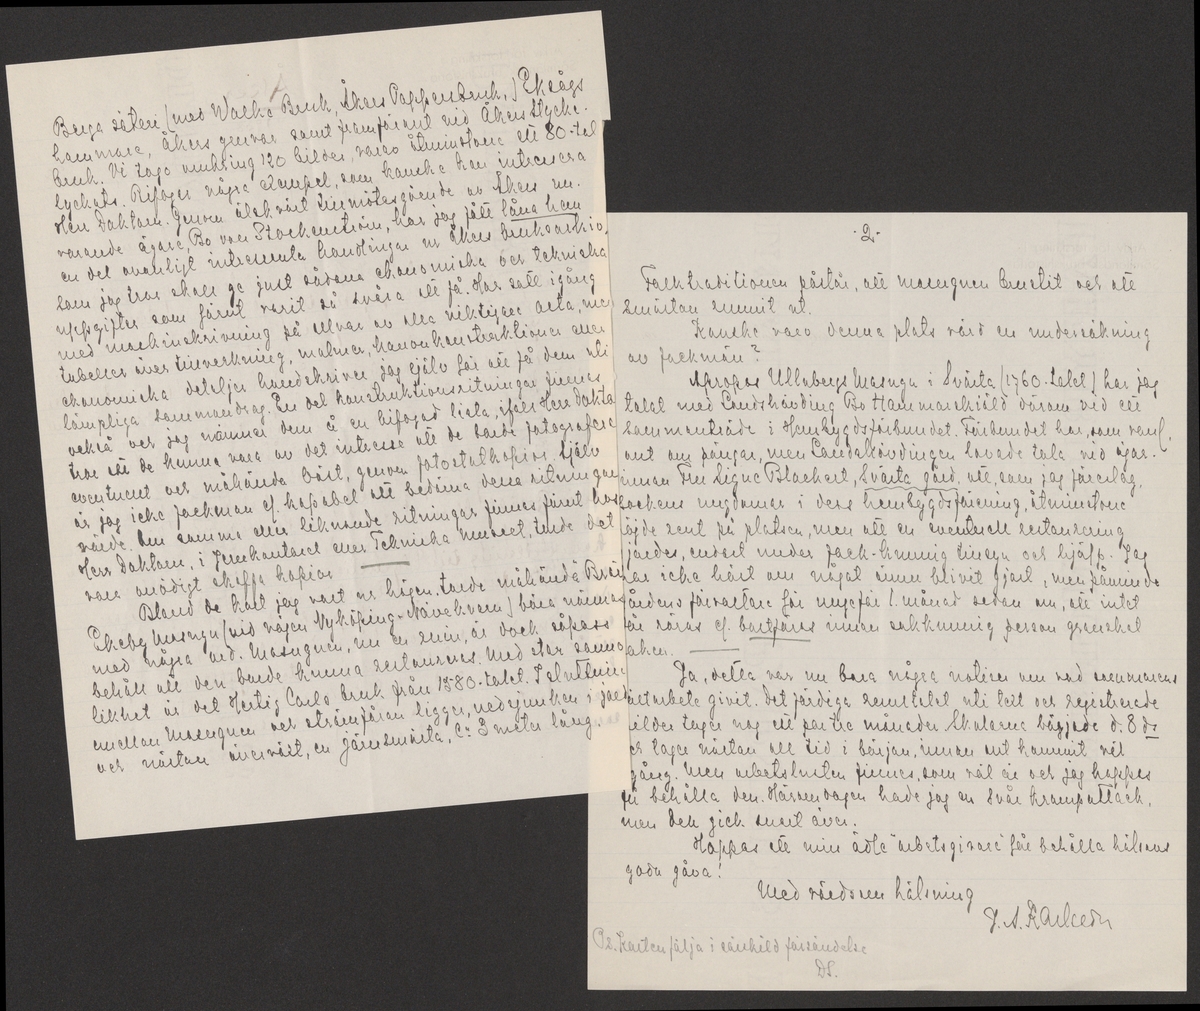 Berga säteri (med Walla Bruk, Åkers Pappersbruk,) Eksågs
hammare, Åkers gruvor samt framförallt vid Åkers Stycke-
bruk. Vi togo omkring 120 bilder, varav åtminstone ett 80-tal
lyckats. Bifogar några exempel, som kanske kan intressera
Herr Doktorn. Genom älskvärt tillmötesgående av Åkers nu-
varande ägare, Bo von Stockenström, har jag fått låna hem
en del ovanligt intressanta handlingar ur Åkers bruksarkiv,
som jag tror skola ge just sådana ekonomiska och tekniska
uppgifter som förut varit så svåra att få. Har satt igång
med maskinskrivning på allvar av alla viktigare acta, men
tabeller över tillverkning, malmer, kanonkonstruktioner eller
ekonomiska detaljer handskriver jag själv för att få dem uti
lämpliga sammandrag. En del konstruktionsritningar finnes
också och jag nämner dem å en bifogad lista, ifall Herr Doktor
tror att de kunna vara av det intresse att de borde fotograferas
eventuellt och måhända bäst, genom fotostatkopior. Själv
är jag icke fackman ej kapabel att bedöma dessa ritningars
värde. Om samma eller liknande ritningar finnes förut hos
Herr Doktorn, i Jernkontoret eller Tekniska Museet, torde det
vara onödigt skaffa kopior.
Bland de hält jag varit ur högen torde måhända Bränn-
Ekeby Masugn (vid vägen Nyköping-Nävekvarn) böra nämnas
med några ord. Masugnen, nu en ruin, är dock såpass
behåll att den borde kunna restaureras. Med stor sanno-
likhet är det Hertig Carls bruk från 1580-talet. I slutningen
emellan Masugnen och strömfåran ligger, nedsjunken i jorden
och nästan övervuxit, en järnsmälta, c:a 3 meter lång.
-2-
Folktraditionen påstår, att masugnen brustit och att
smältan runnit ut.
Kanske vore denna plats värd en undersökning
av fackmän?
Apropos Ullabergs Masugn i Svärta (1760-talet) har jag
talat med Landshövding Bo Hammarskjöld därom vid ett
sammanträde i Hembygdsförbundet. Förbundet har, som vanl.
ont om pengar, men Landshövdingen lovade tala vid ägar-
innan Fru Signe Blackert, Svärta gård, att, som jag föreslog,
sockens ungdomar i dess hembygdsförening, åtminstone
röjde rent på platsen, men att en eventuell restaurering
gjordes, endast under fack-kunnig tillsyn och hjälp. Jag
har icke hört om något ännu blivit gjort, men påminde
gårdens förvaltare för ungefär 1. månad sedan om, att intet
får röras ej bortföras innan sakkunnig person granskat
saken.
Ja, detta var nu bara några notiser om vad sommarens
fältarbete givit. Det färdiga resultatet uti text och registrerade
bilder tager nog ett par tre månader. Skolorna började d. 8 ds
och tager nästan all tid i början, innan allt kommit väl
i gång. Men arbetslusten finnes, som väl är och jag hoppas
få behålla den. Häromdagen hade jag en svår krampattack,
men den gick snart över.
Hoppas att min ädle arbetsgivare får behålla hälsans
goda gåva!
Med vördsam hälsning
J. A. Karlsson
Ps. Korten följa i särskild försändelse
DS.